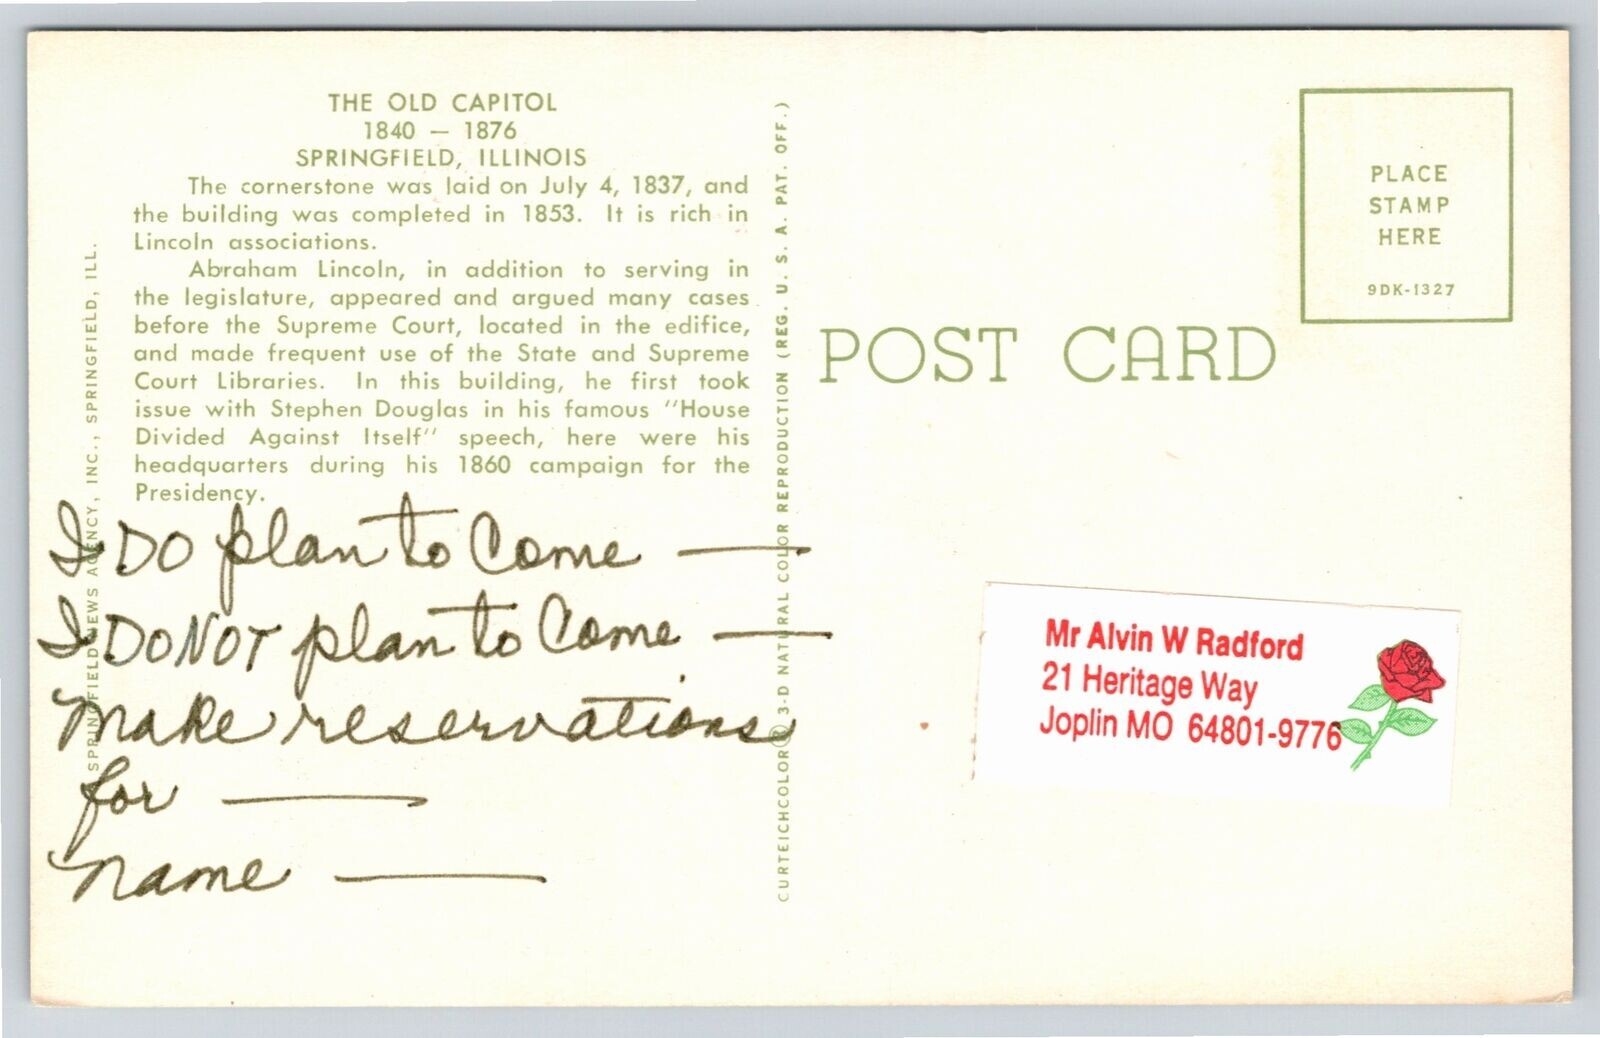 THE OLD CAPITOL
1840 — 1876
SPRINGFIELD, ILLINOIS
The cornerstone was laid on July 4, 1837, and
the building was completed in 1853. It is rich in
Lincoln associations.
Abraham Lincoln, in addition to serving in
the legislature, appeared and argued many cases
before the Supreme Court, located in the edifice,
and made frequent use of the State and Supreme
Court Libraries. In this building, he first took
issue with Stephen Douglas in his famous "House
Divided Against Itself" speech, here were his
headquarters during his 1860 campaign for the
Presidency.
SPRINGFIELD NEWS AGENCY, INC., SPRINGFIELD, ILL.
I DO plan to Come —
I DO NOT plan to Come —
Make reservations
for —
Name —
CURTEICHCOLOR® 3-D NATURAL COLOR REPRODUCTION (REG. U. S. A. PAT. OFF.)
POST CARD
PLACE
STAMP
HERE
9DK-1327
Mr Alvin W Radford
21 Heritage Way
Joplin MO 64801-9776